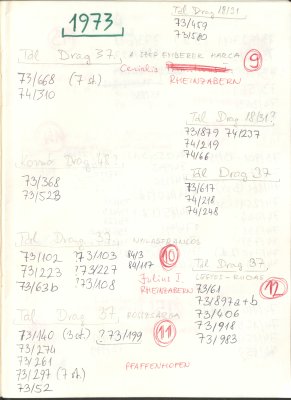 1973
Tál Drag 18/31
73/459
73/580
Tál Drag 37, A STOP EMBEREK HARCA
Cerialis
RHEINZABERN
9
73/668 (7 st)
74/310
Tál Drag 18/31?
73/879 74/237
74/219
74/66
Drag 48?
73/368
73/528
Tál Drag 37
73/617
74/218
74/248
Tál Drag 37, NYULASFRANCOS
73/102 ?73/103 84/3
73/223 ?73/227 84/117
73/63b ?73/108
10
Julius I
RHEINZABERN
Tál Drag 37,
LEPÉS-KUTYÁS
12
73/61
73/897a+b
73/406
73/918
73/983
Tál Drag 37,
73/140 (3 st) ?73/199
11
73/274
73/261
73/297 (7 st)
73/52
PFAFFENHOFEN